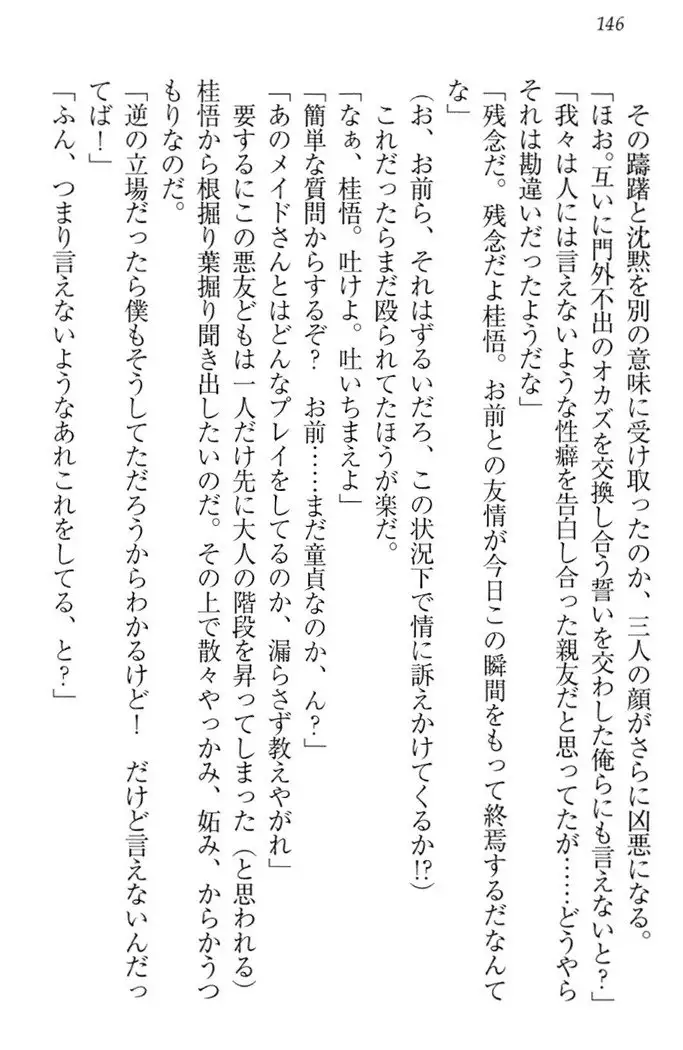 146
その躊躇と沈黙を別の意味に受け取ったのか、三人の顔がさらに凶悪になる。
「ほお。互いに門外不出のオカズを交換し合う誓いを交わした俺らにも言えないと?」
「我々は人には言えないような性癖を告白し合った親友だと思ってたが……どうやら
それは勘違いだったようだな」
「残念だ。残念だよ桂悟。お前との友情が今日この瞬間をもって終焉するだなんて
な」
(お、お前ら、それはずるいだろ、この状況下で情に訴えかけてくるか!?)
これだったらまだ殴られてたほうが楽だ。
「なぁ、桂悟。吐けよ。吐いちまえよ」
「簡単な質問からするぞ? お前……まだ童貞なのか、ん?」
「あのメイドさんとはどんなプレイをしてるのか、漏らさず教えやがれ」
要するにこの悪友どもは一人だけ先に大人の階段を昇ってしまった(と思われる)
桂悟から根掘り葉掘り聞き出したいのだ。その上で散々やっかみ、妬み、からかうつ
もりなのだ。
「逆の立場だったら僕もそうしてただろうからわかるけど! だけど言えないんだっ
てば!」
「ふん、つまり言えないようなあれこれをしてる、と?」